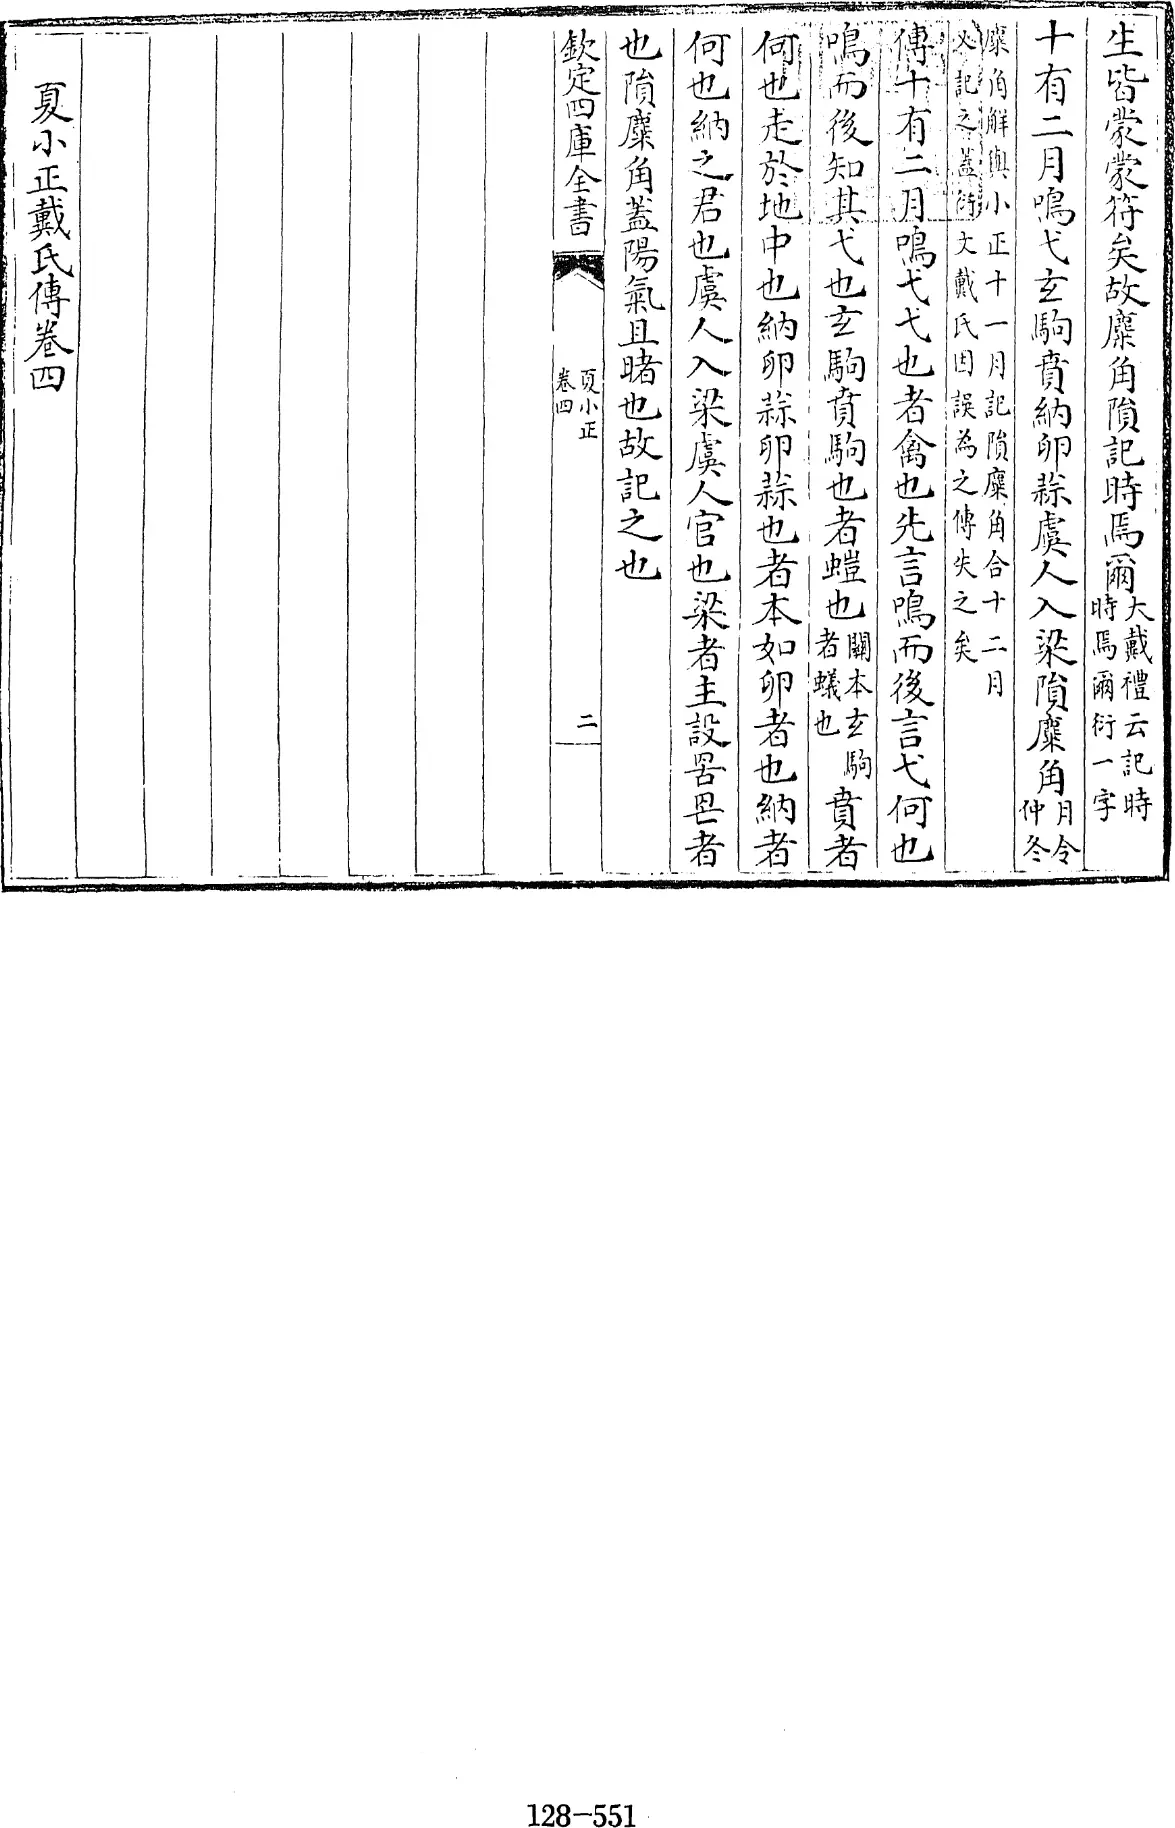 生皆蒙蒙符矣故麋角隕記時焉爾
大戴禮云記時
時焉爾衍一字
十有二月鳴弋玄駒賁納卵蒜虞人入梁隕麋角
月令
仲冬
麋角解與小正十一月記隕麋角合十二月
記之蓋衍文戴氏因誤為之傳失之矣
傳十有二月鳴弋弋也者禽也先言鳴而後言弋何也
鳴而後知其弋也玄駒賁駒也者螘也
關本玄駒
者蟻也
賁者
何也走於地中也納卵蒜卵蒜也者本如卵者也納者
何也納之君也虞人入梁虞人官也梁者主設罟罔者
也隕麋角蓋陽氣且睹也故記之也
欽定四庫全書
夏小正
卷四
二
夏小正戴氏傳卷四
128-551